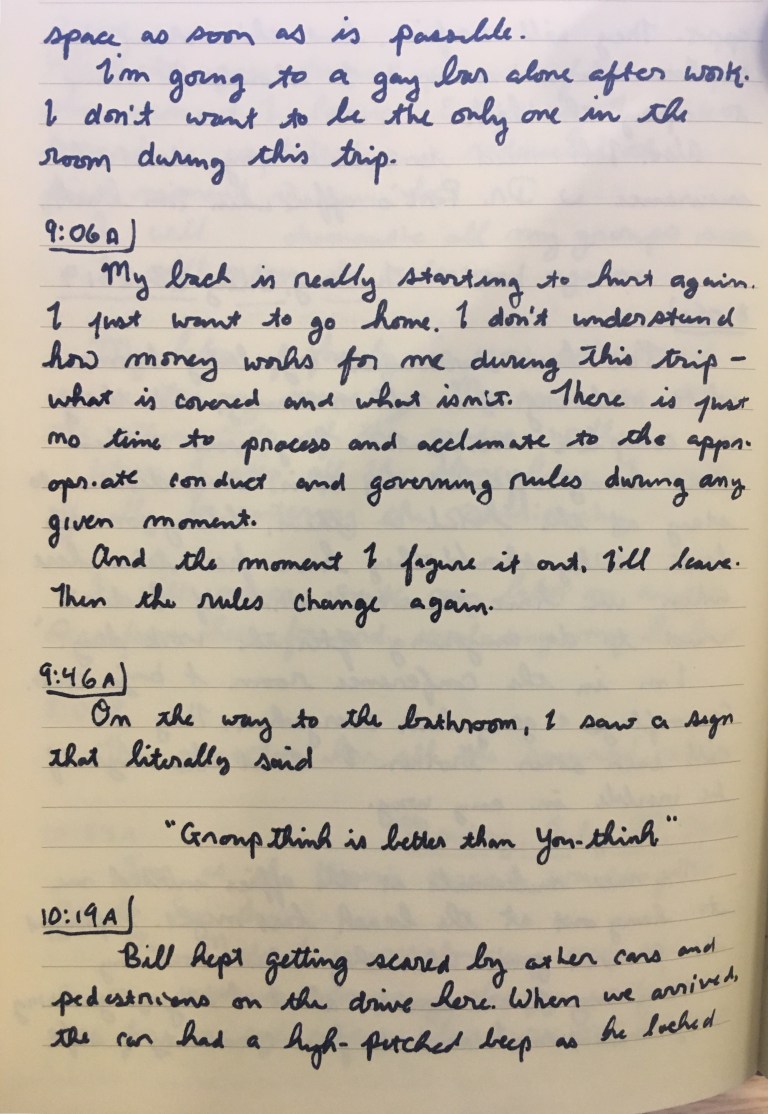 space as soon as is possible.
I'm going to a gay bar alone after work.
I don't want to be the only one in the
room during this trip.
9:06A
My back is really starting to hurt again.
I just want to go home. I don't understand
how money works for me during this trip –
what is covered and what isn't. There is just
no time to process and acclimate to the appr-
opriate conduct and governing rules during any
given moment.
And the moment I figure it out, I'll leave.
Then the rules change again.
9:46A
On the way to the bathroom, I saw a sign
that literally said
"Groupthink is better than You-think"
10:19A
Bill kept getting scared by other cars and
pedestrians on the drive here. When we arrived,
the car had a high-pitched beep as he locked